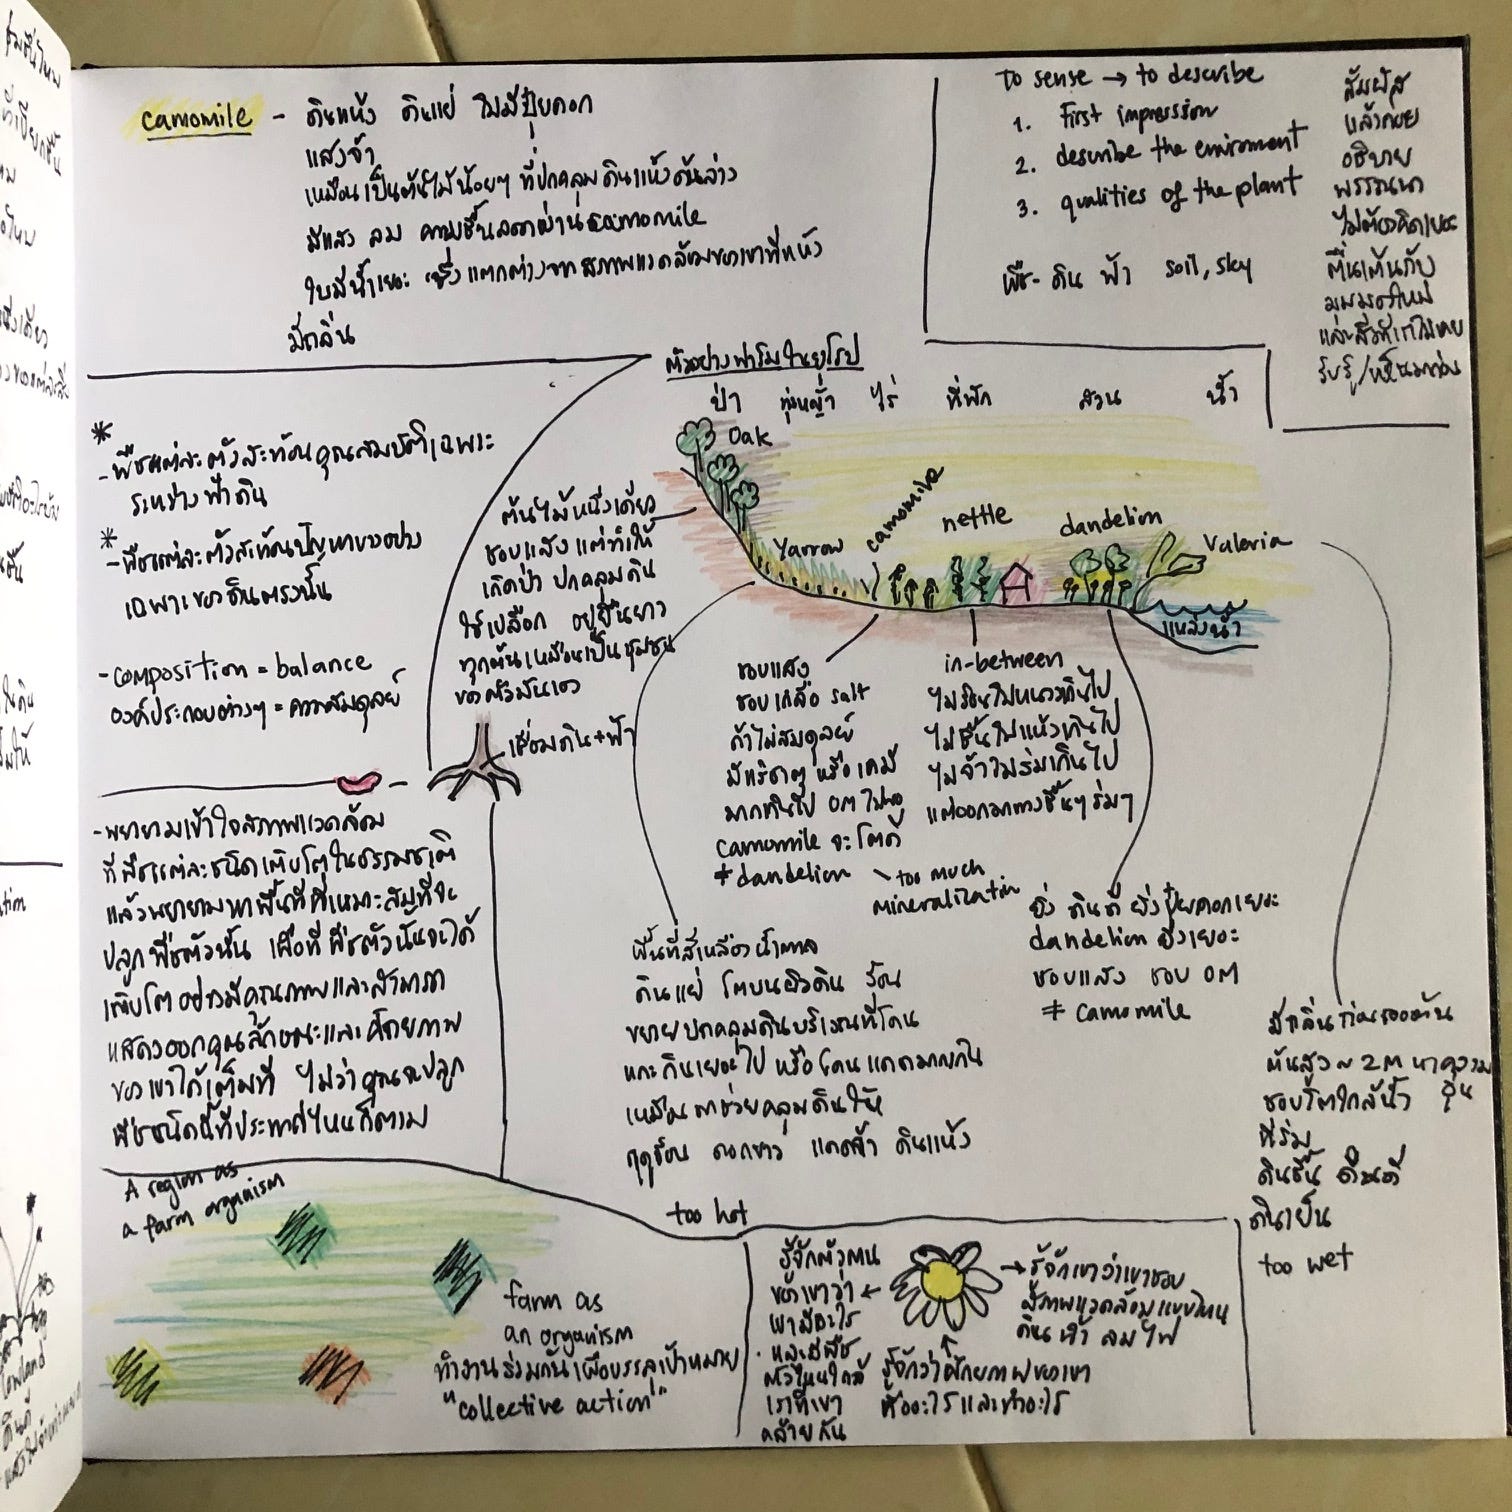 camomile - ดินแห้ง ดินแย่ ไม่มีปุ๋ยคอก
แสงจ้า
เหมือนเป็นต้นไม้น้อยๆ ที่ปกคลุมดินแห้งด้านล่าง
มีแสง ลม ความชื้นลอดผ่าน camomile
ใบมีน้ำเยอะ ซึ่งแตกต่างจากสภาพแวดล้อมของเขาที่แห้ง
มีกลิ่น
To sense → to describe
1. First impression
2. describe the enviroment
3. qualities of the plant
พืช - ดิน ฟ้า soil, sky
สัมผัส
แล้วค่อย
อธิบาย
พรรณนา
ไม่ต้องคิดเยอะ
ตื่นเต้นกับ
มุมมองใหม่
และสิ่งที่เราไม่เคย
รับรู้/เห็นมาก่อน
* - พืชแต่ละตัวสะท้อนคุณสมบัติเฉพาะ
ระหว่างฟ้าดิน
* - พืชแต่ละตัวสะท้อนปัญหาบางอย่าง
เฉพาะของดินตรงนั้น
- composition = balance
องค์ประกอบต่างๆ = ความสมดุลย์
- พยายามเข้าใจสภาพแวดล้อม
ที่พืชแต่ละชนิดเติบโตในธรรมชาติ
แล้วพยายามหาพื้นที่ที่เหมาะสมที่จะ
ปลูกพืชตัวนั้น เพื่อที่พืชตัวนั้นจะได้
เติบโตอย่างมีคุณภาพและสามารถ
แสดงออกคุณลักษณะและศักยภาพ
ของเขาได้เต็มที่ ไม่ว่าคุณจะปลูก
พืชชนิดนี้ที่ประเทศไหนก็ตาม
ตัวอย่างฟาร์มในยุโรป
ป่า ทุ่งหญ้า ไร่ ที่พัก สวน น้ำ
Oak
Yarrow camomile nettle dandelion Valeria
แหล่งน้ำ
ต้นไม้หนึ่งเดียว
ชอบแสง แต่ทำให้
เกิดป่า ปกคลุมดิน
ใช้เปลือก อยู่ยืนยาว
ทุกต้นเหมือนเป็นชุมชน
ของตัวมันเอง
เชื่อมดิน+ฟ้า
ชอบแสง
ชอบเกลือ salt
ถ้าไม่สมดุลย์
มีแร่ธาตุ หรือเคมี
มากเกินไป OM ไม่พอ
camomile จะโตดี
≠ dandelion
too much
mineralization
in-between
ไม่ร้อนไม่หนาวเกินไป
ไม่ชื้นไม่แห้งเกินไป
ไม่จ้าไม่ร่มเกินไป
แต่ออกมาทางชื้นๆ ร่มๆ
พื้นที่สีเหลืองน้ำตาล
ดินแย่ โตบนผิวดิน ร้อน
ขยายปกคลุมดินบริเวณที่โดน
แกะกินเยอะไป หรือโดนแดดมากเกิน
เหมือนมาช่วยคลุมดินให้
ฤดูร้อน ดอกขาว แดดจ้า ดินแห้ง
too hot
ยิ่งดินดี ยิ่งปุ๋ยคอกเยอะ
dandelion ยิ่งเยอะ
ชอบแสง ชอบ OM
≠ camomile
มีกลิ่นก่อนเจอต้น
ต้นสูง ~ 2m หาความอุ่น
ชอบโตใกล้น้ำ
ที่ร่ม
ดินชื้น ดินดี
ดินเย็น
too wet
A region as
a farm organism
farm as
an organism
ทำงานร่วมกันเพื่อบรรลุเป้าหมาย
"collective action"
รู้จักตัวตน
ของเขาว่า
เขามีอะไร
และมีพืช
ตัวไหนใกล้
เราที่เขา
คล้ายกัน
รู้จักเขาว่าเขาชอบ
สภาพแวดล้อมแบบไหน
ดิน น้ำ ลม ไฟ
รู้จักว่าศักยภาพของเขา
คืออะไรและทำอะไร